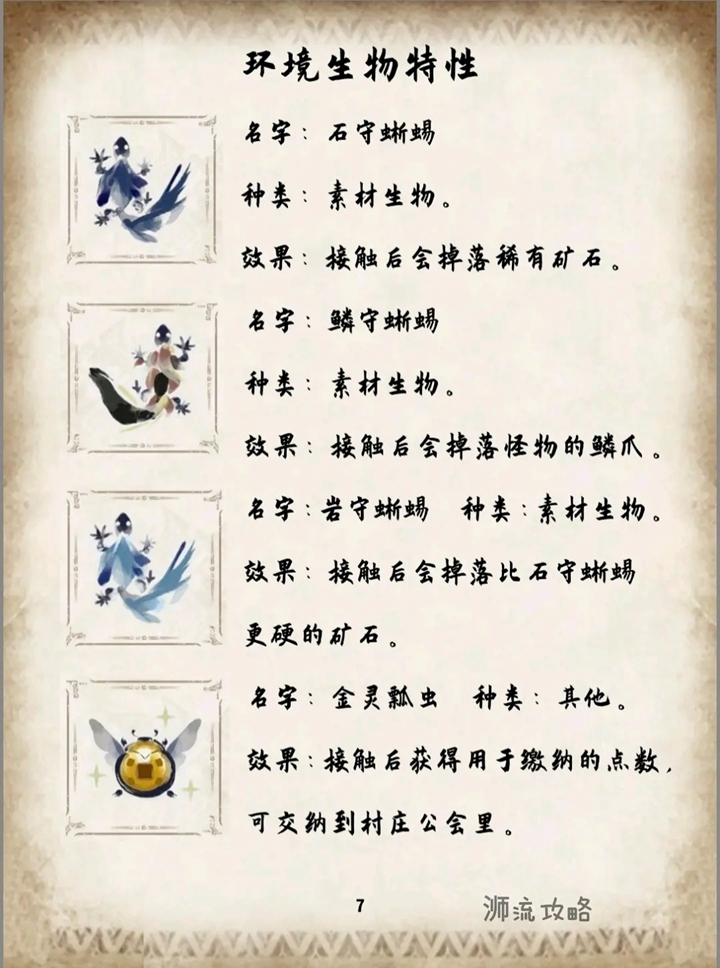 环境生物特性
名字：石守蜥蜴
种类：素材生物。
效果：接触后会掉落稀有矿石。
名字：鳞守蜥蜴
种类：素材生物。
效果：接触后会掉落怪物的鳞爪。
名字：岩守蜥蜴 种类：素材生物。
效果：接触后会掉落比石守蜥蜴
更硬的矿石。
名字：金灵瓢虫 种类：其他。
效果：接触后获得用于缴纳的点数，
可交纳到村庄公会里。
7
浉流攻略